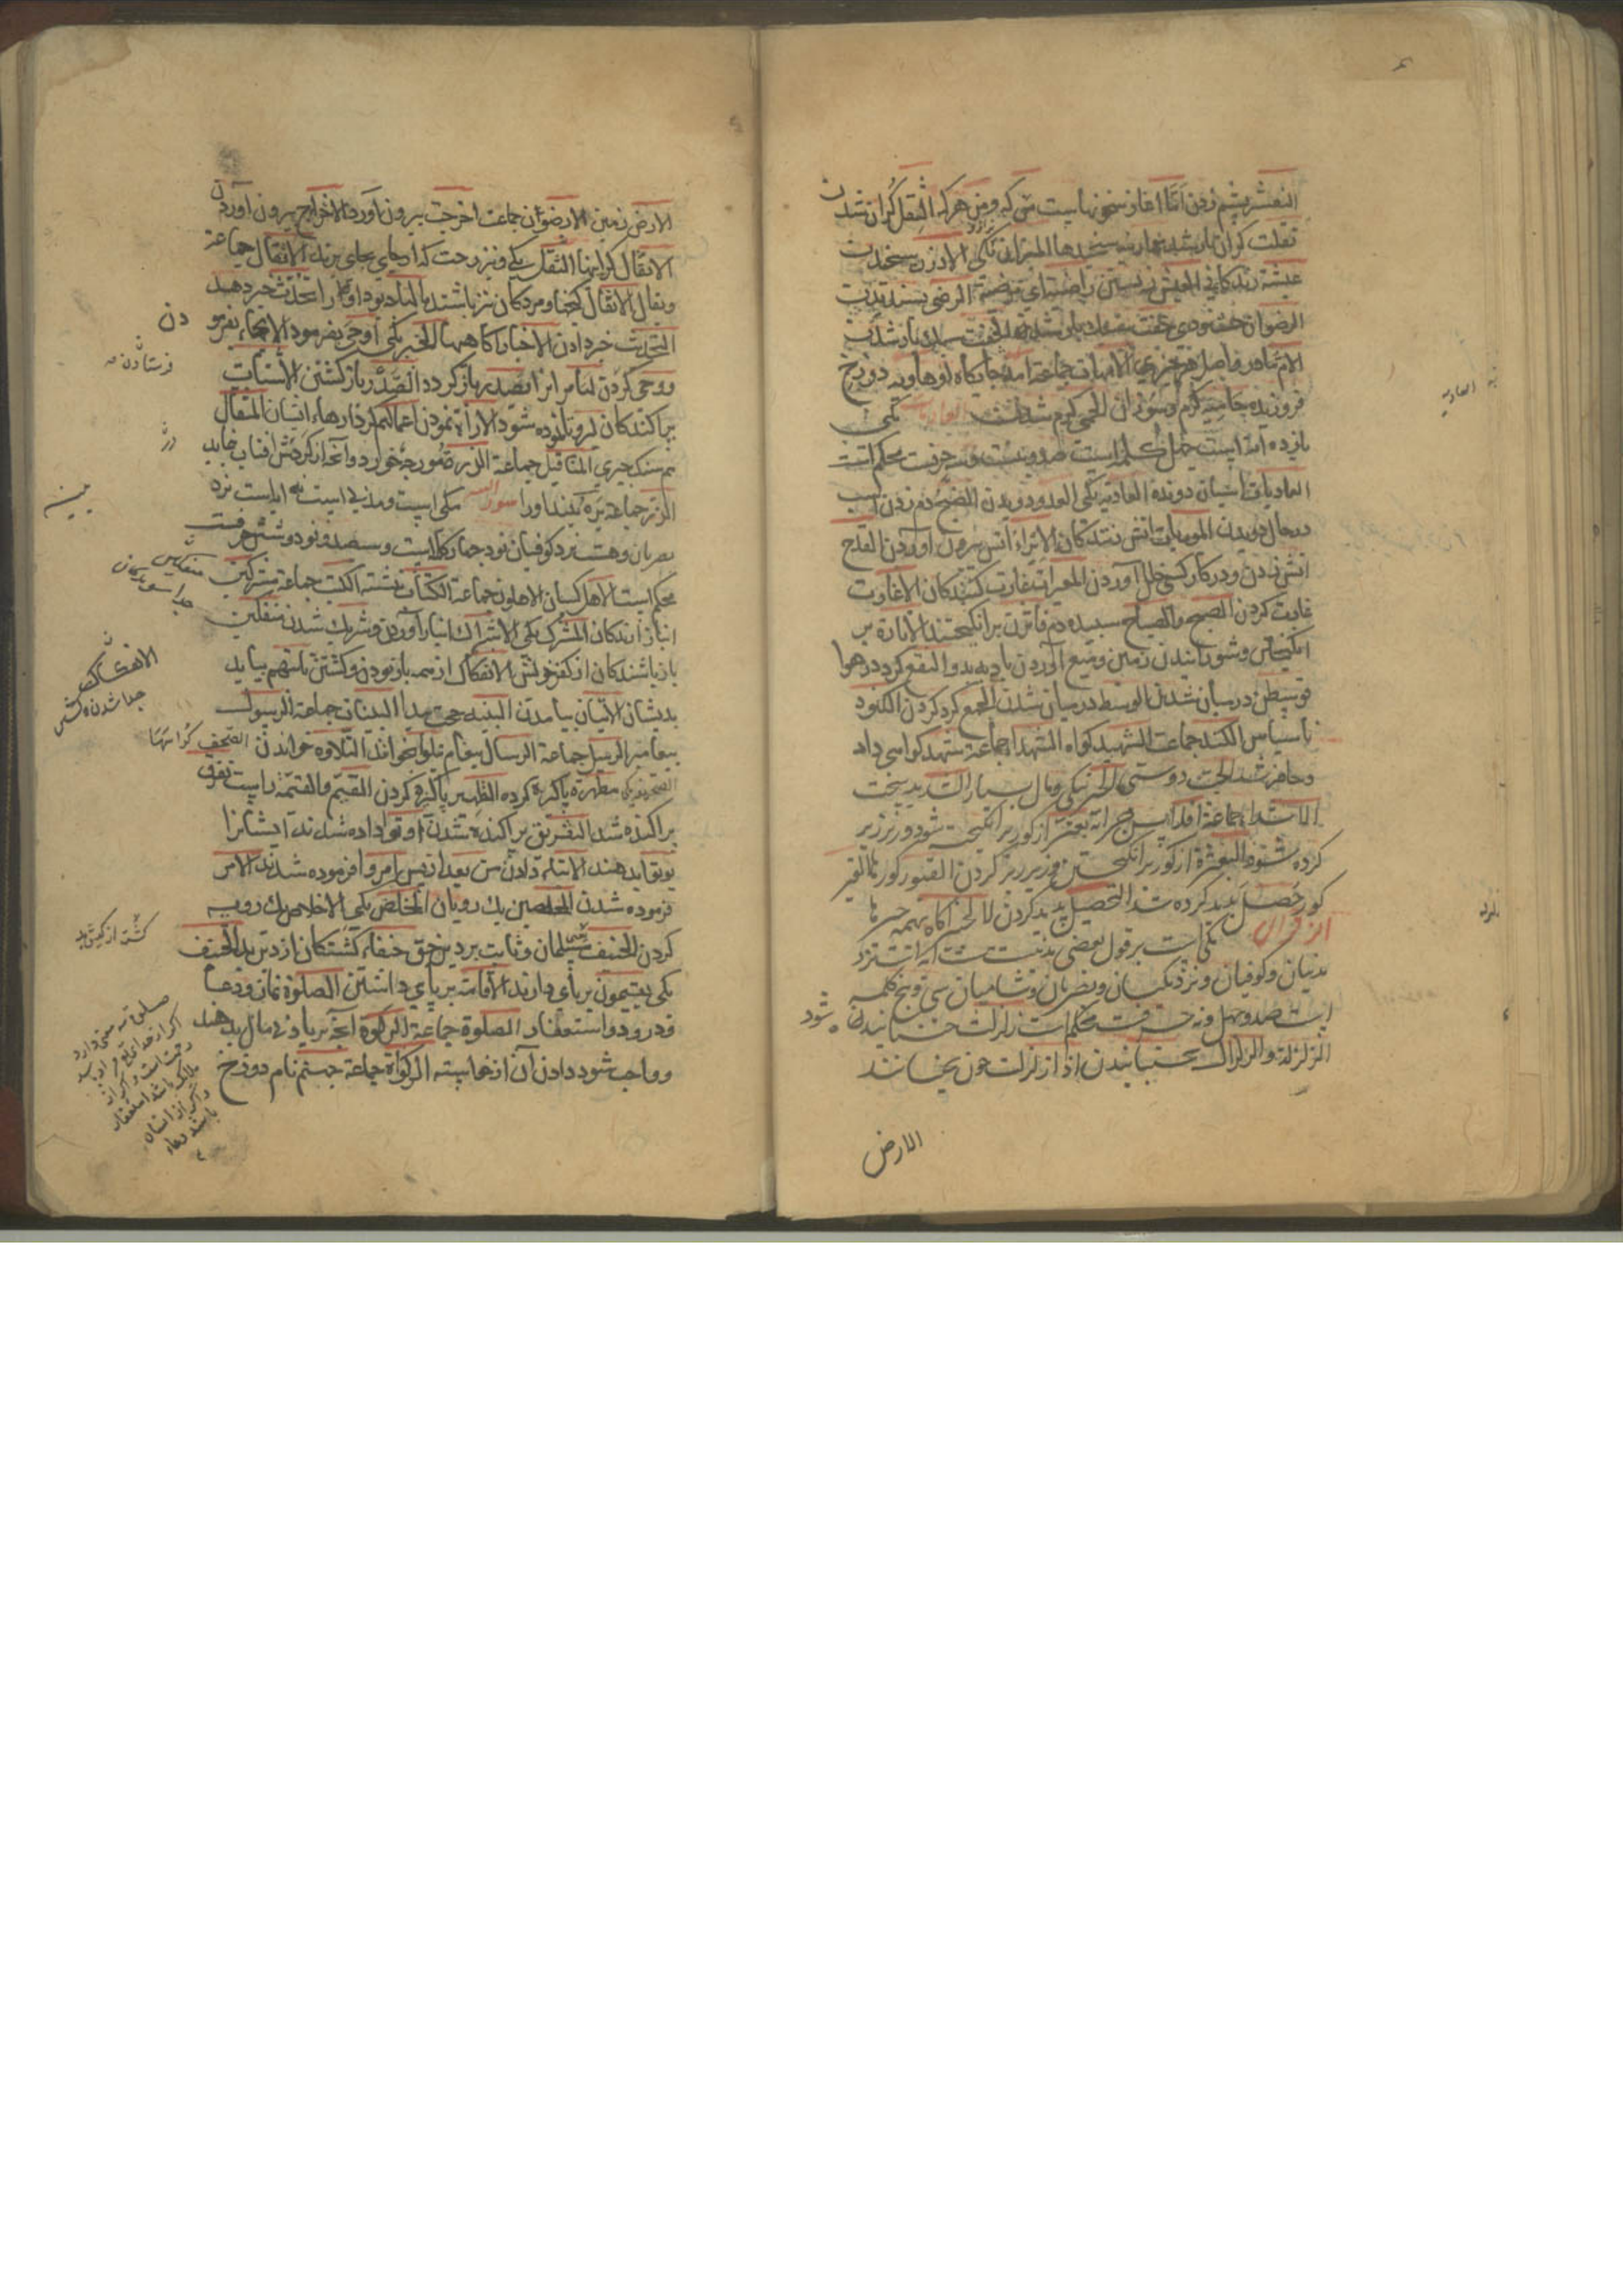 النفش پشم زدن اما اغاز سخن راست من که ومن هر که الثقل کران شدن
ثقلت کران بار شد موازینه سنجیدها المیزان یکی الوزن سنجیدن
عیشة زندکانی العیش زیستن راضیة ای مرضیة الرضی پسندیدن
الرضوان خشنودی خفت سبک شد الخفة سبک بار شدن
الام مادر واصل هر چیزی الامهات جماعة امه جایکاه او هاویه دوزخ
فروزنده حامیه کرم وسوزان الحمی کرم شدن العادیات مکی
یازده آیة است چهل کلمه است صد و شصت وسه حرفست محکم است
العادیات اسبان دونده العادیة یکی العدو دویدن الضبح دم زدن اسب
در حال دویدن الموریات اتش زنندکان الایراء اتش بیرون آوردن القدح
اتش زدن ودر کار کسی خلل آوردن المغیرات غارت کنندکان الاغارت
غارت کردن الصبح والصباح سپیده دم فاثرن برانکیختند الاثارة بر
انکیختن وشورانیدن زمین ومیغ آوردن باد به بدو النقع کرد در هوا
فوسطن در میان شدن الوسط در میان شدن الجمع کرد کردن الکنود
ناسپاس الکند جماعت الشهید کواه الشهدا جماعة شهد کواهی داد
وحاضر شد الحب دوستی الخیر نیکی ومال بسیار الشدید سخت
الاشدا جماعة افلا پس چرا نه بعثر از کور بر انکیخته شود وزیر زبر
کرده شود البعثرة از کور بر انکیختن وزیر زبر کردن القبور کورها القبر
کور حصل پدید کرده شد التحصیل پدید کردن الخبیر آکاه بهمه چیزها
الزلزال مکی است بر قول بعضی مدنیست هشت آیة است نزد
مدنیان وکوفیان ونزد مکیان وبصریان وشامیان سی وپنج کلمه
است صد وچهل ونه حرفست محکم است زلزلت جنبانیدن شود
الزلزلة والزلزال بجنبانیدن اذا زلزلت چون بجنبانند
الارض
الارض زمین الارضون جماعت اخرجت بیرون آورد الاخراج بیرون آوردن
الاثقال کرانیها الثقل یکی ونیز رخت که از جای بجای برند الاثقال جماعة
ویقال الاثقال کنجها ومردکان نیز باشند مالها چه بود او را تحدث خبر دهد
التحدیث خبر دادن الاخبار آکاهیها الخبر یکی اوحی بفرمود الایحاء بفرمو
دن
ووحی کردن لها مر انرا یصدر باز کردد الصدر باز کشتن الاشتات
فرستادن
پراکندکان لیروا نموده شود الاراءة نمودن اعمالهم کردارهاء ایشان المثقال
هم سنک چیزی المثاقیل جماعة الذرة مورچۀ خورد وآنچه از کردش افتاب نماید
الذر جماعة یره بیند او را سورة البینة مکی است ومدنی است نه ایاست نزد
بصریان وهشت نزد کوفیان نود وچهار کلمه است وسیصد ونود وشش حرفست
محکم است الاهل کسان الاهلون جماعة الکتاب نبشته الکتب جماعة مشرکین
انباز ارندکان المشرک یکی الاشراک انباز آوردن وشریک شدن منفکین
باز باشندکان از کفر خویش الانفکاک از هم باز بودن وکشتن تاتیهم بیاید
الانفکاک
جدا شدن وکشتن
بدیشان الاتیان بیامدن البینة حجت پیدا البینات جماعة الرسول
پیغامبر الرسل جماعة الرسالة پیغام یتلوا خواند التلاوه خواندن الصحف کراستها
الصحیفة یکی مطهرة پاکیزه کرده التطهیر پاکیزه کردن القیم والقیمة راست تفرق
پراکنده شد التفریق پراکنده شدن اوتوا داده شدند ایشانرا
یوتوا بدهند الایتاء دادن من بعد از پس امروا فرموده شدند الامر
فرموده شدن المخلصین یک رویان المخلص یکی الاخلاص یک رویه
کردن الحنیف مسلمان وثابت بر دین حق حنفاء کشتکان از دین بد الحنیف
کشته از کیش بد
یکی یقیمون برپای دارند الاقامة برپای داشتن الصلوة نماز ودعا
ودرود واستغفار الصلوة جماعة الزکوة آنچه بریادتی مال بدهند
وواجب شود دادن آن از خواسته الزکواة جماعة جهنم نام دوزخ
صلوة سه معنی دارد
اکر از خدای تع بود
رحمت است واکر از
ملائکه باشد استغفار
واکر از انسان
باشد دعاء